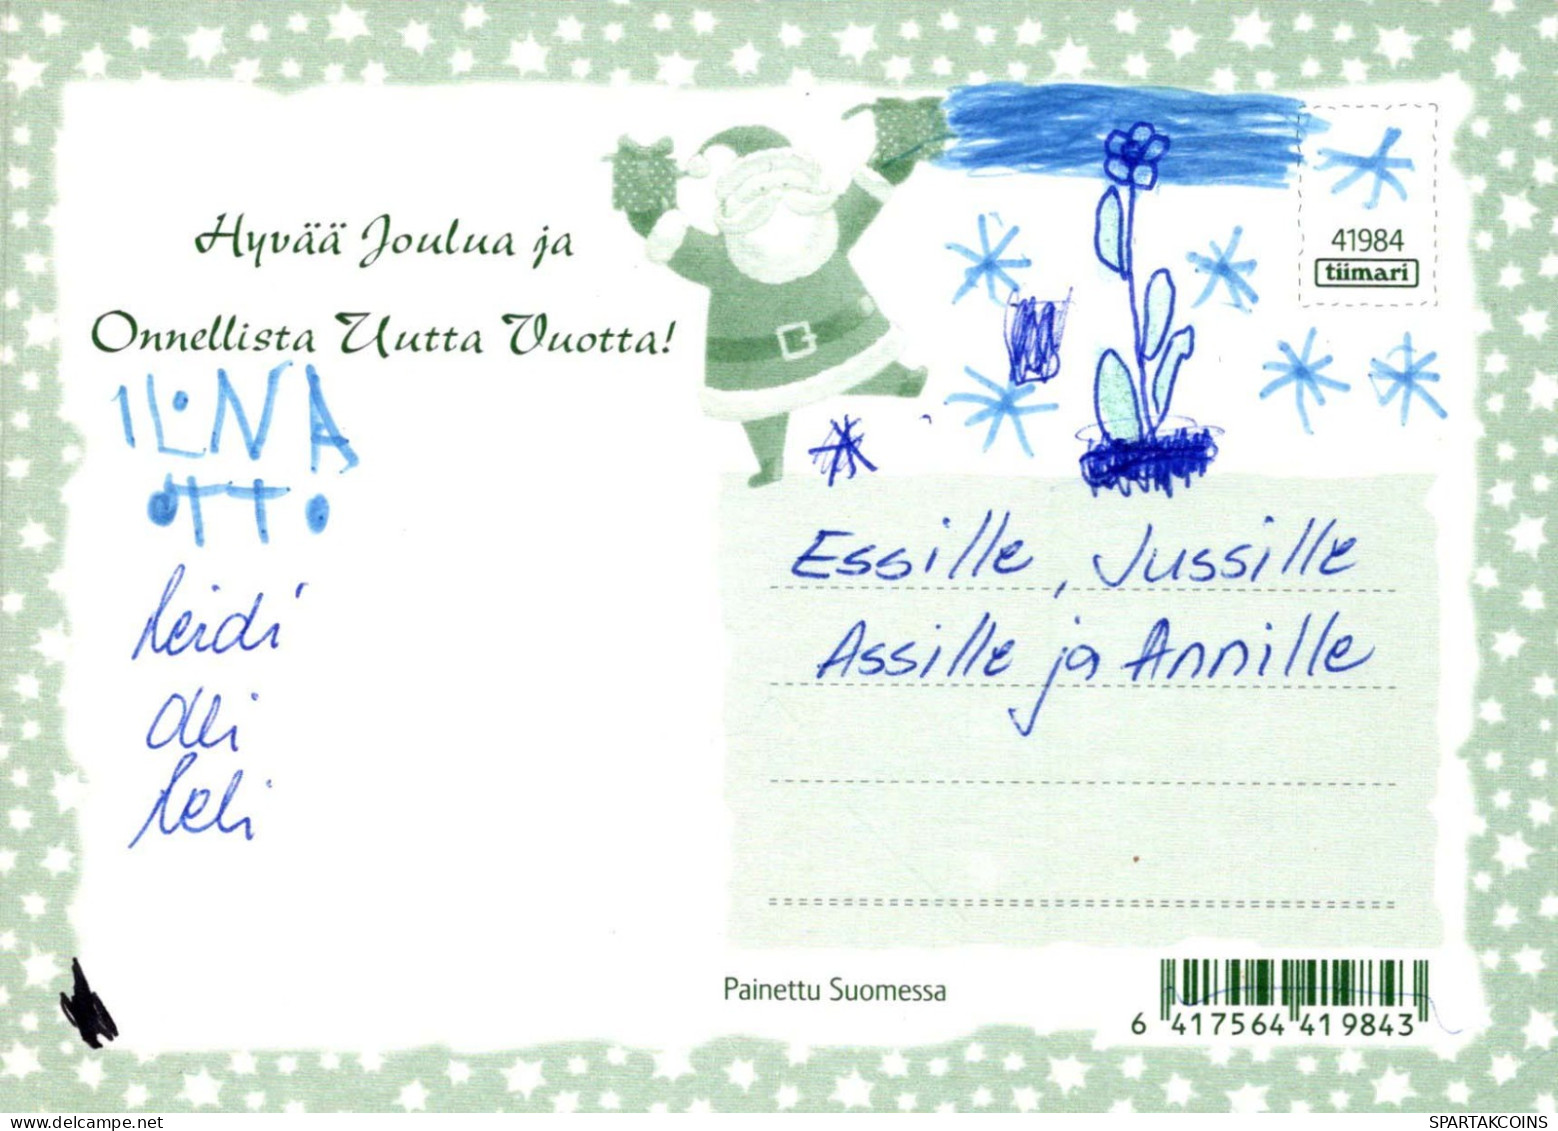 Hyvää Joulua ja
Onnellista Uutta Vuotta!
ILONA
OTTO
Heidi
Olli
Heli
41984
tiimari
Essille, Jussille
Assille ja Annille
Painettu Suomessa
6 417564 419843
www.delcampe.net
SPARTAKCOINS